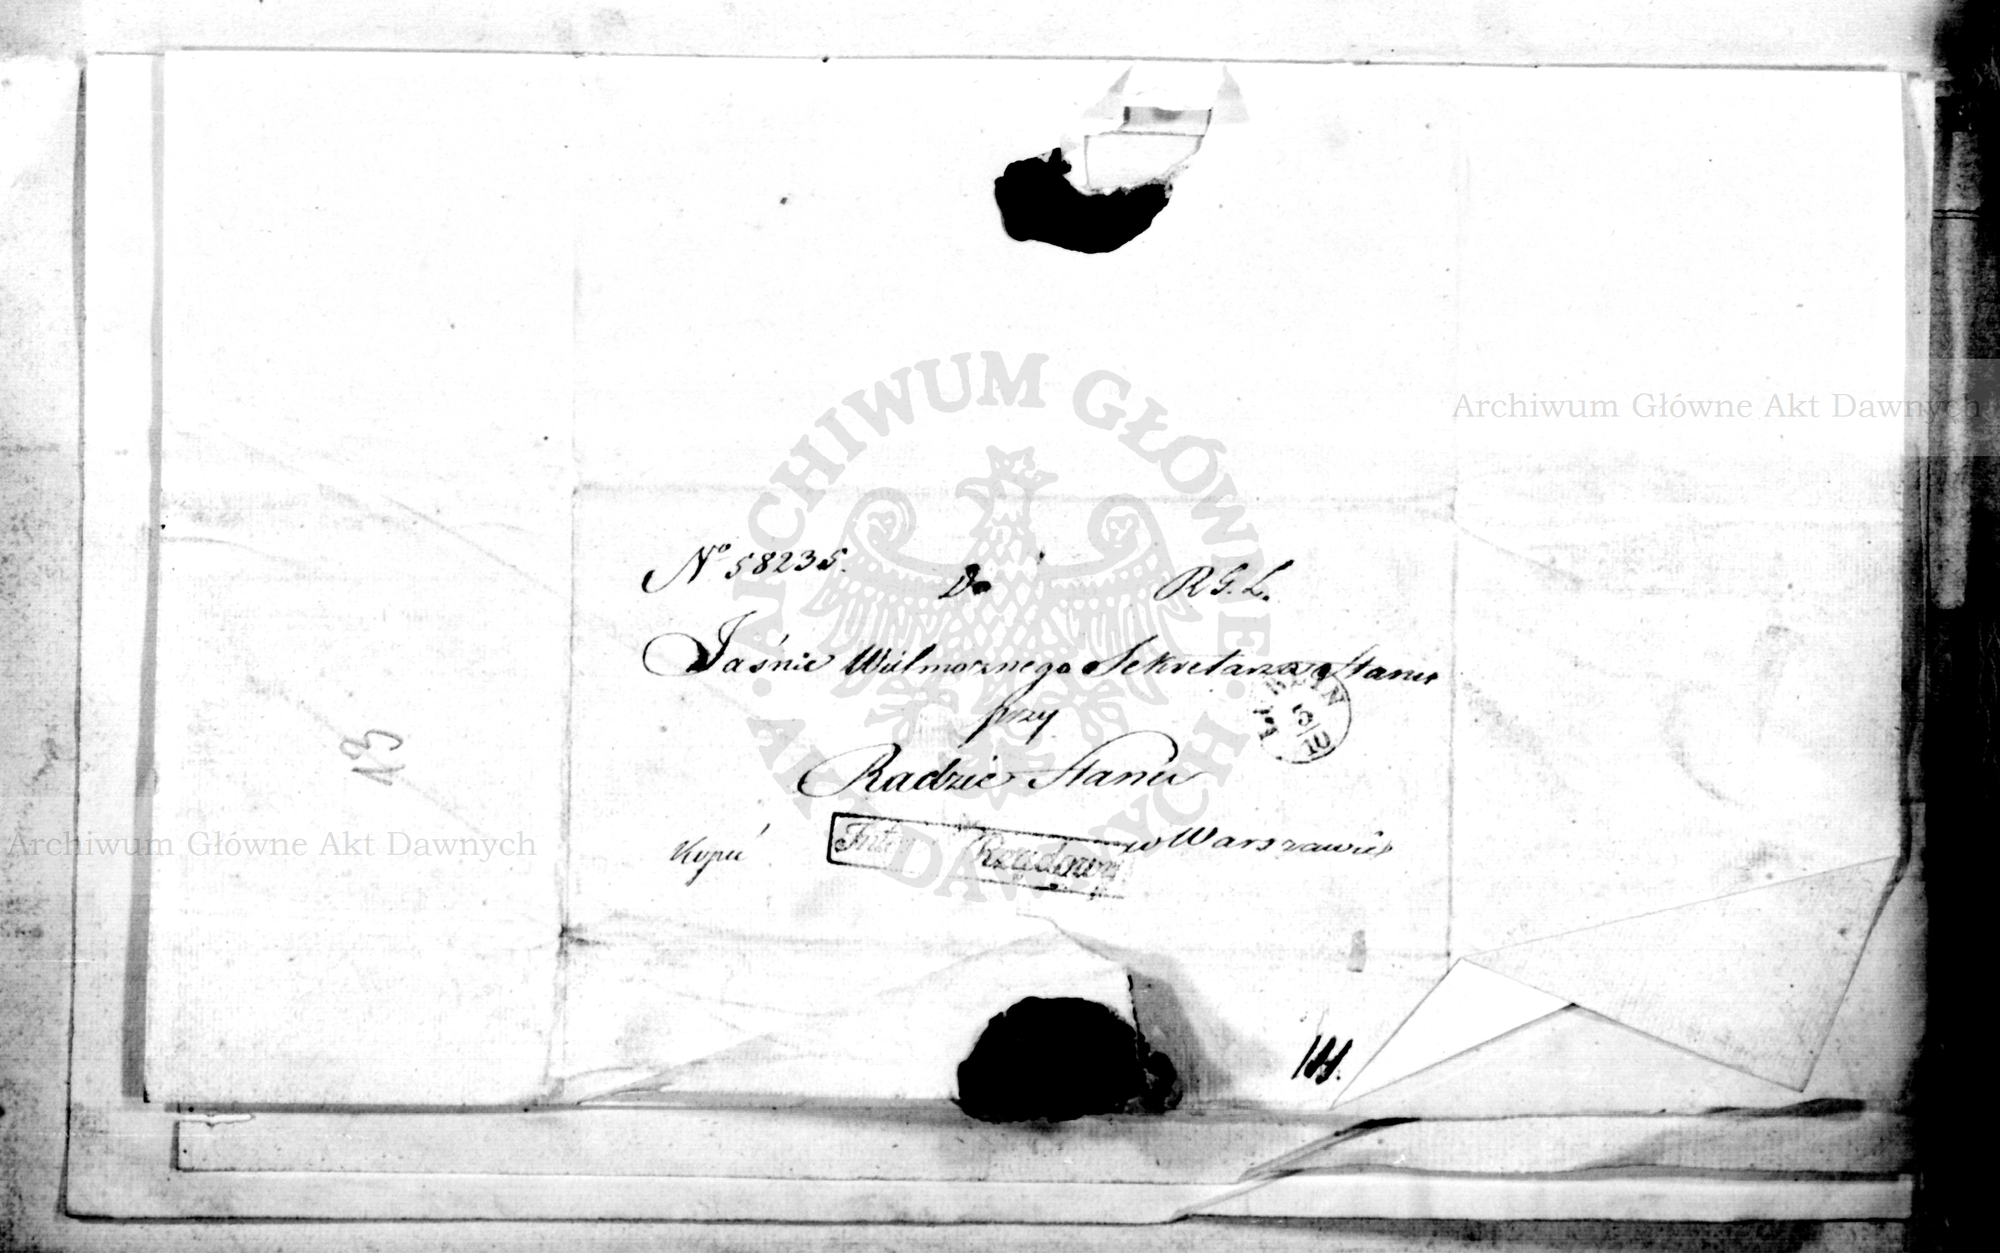 ARCHIWUM GŁÓWNE AKT DAWNYCH
Archiwum Główne Akt Dawnych
Nº 58235. Do R. G. L.
Jaśnie Wielmoznego Sekretarza Stanu
przy
Radzie Stanu
w Warszawie
Rządowy
13
5/10
Archiwum Główne Akt Dawnych